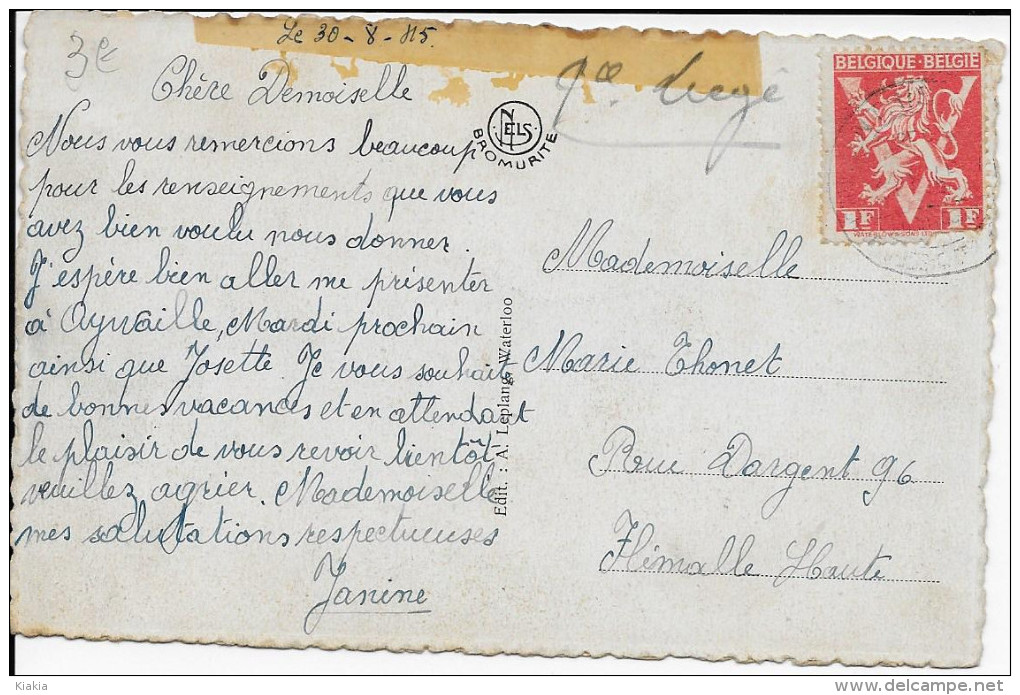 Le 30-8-45.
3€
Chère Demoiselle
Nous vous remercions beaucoup
pour les renseignements que vous
avez bien voulu nous donner.
J'espère bien aller me présenter
à Aywaille, Mardi prochain
ainsi que Josette. Je vous souhait
de bonnes vacances et en attendant
le plaisir de vous revoir bientôt
veuillez agrier. Mademoiselle
mes salutations respectueuses
Janine
NELS
BROMURITE
Edit. : A. Leplang, Waterloo
Liegé
BELGIQUE-BELGIE
1F 1F
WATERLOW & SONS LTD
Mademoiselle
Marie Thonet
Rue Dargent 96
Flémalle Haute
Kiakia
www.delcampe.net